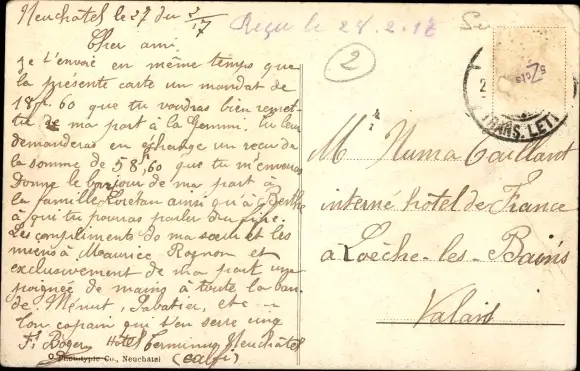 Neuchatel le 27 du 2/17
Reçu le 28.2.17
2
Cher ami.
je t'envoie en même temps que
la présente carte un mandat de
18fr.60 que tu voudras bien remet-
tre de ma part à la Gemme. Tu leur
demanderas en échange un reçu de
la somme de 58fr,60 que tu m'enverras
Donne le bonjour de ma part à
la famille Loretan ainsi qu'à Berthe
à qui tu pourras parler du
Les compliments de ma sœur et les
miens à Maurice Rognon et
exclusivement de ma part une
poignée de mains à toute la ban-
de Ménut, Sabatier, etc
Ton copain qui t'en serre cinq
Hotel Terminus Neuchatel
Phototypie Co., Neuchatel
TRANS. LETT
5 cts
M Numa Gaillant
interné hôtel de France
à Loèche-les-Bains
Valais